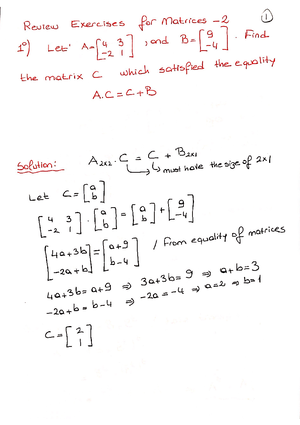 Review Exercises for Matrices -2 ①
1°) Let A=[4 3; -2 1], and B=[9; -4]. Find
the matrix C which satisfied the equality
A.C = C+B
Solution: A2x2 . C = C + B2x1
↳ must have the size of 2x1
Let C=[a; b]
[4 3; -2 1] . [a; b] = [a; b] + [9; -4]
[4a+3b; -2a+b] = [a+9; b-4] / From equality of matrices
4a+3b = a+9 ⇒ 3a+3b = 9 ⇒ a+b=3
-2a+b = b-4 ⇒ -2a=-4 ⇒ a=2 ⇒ b=1
C=[2; 1]